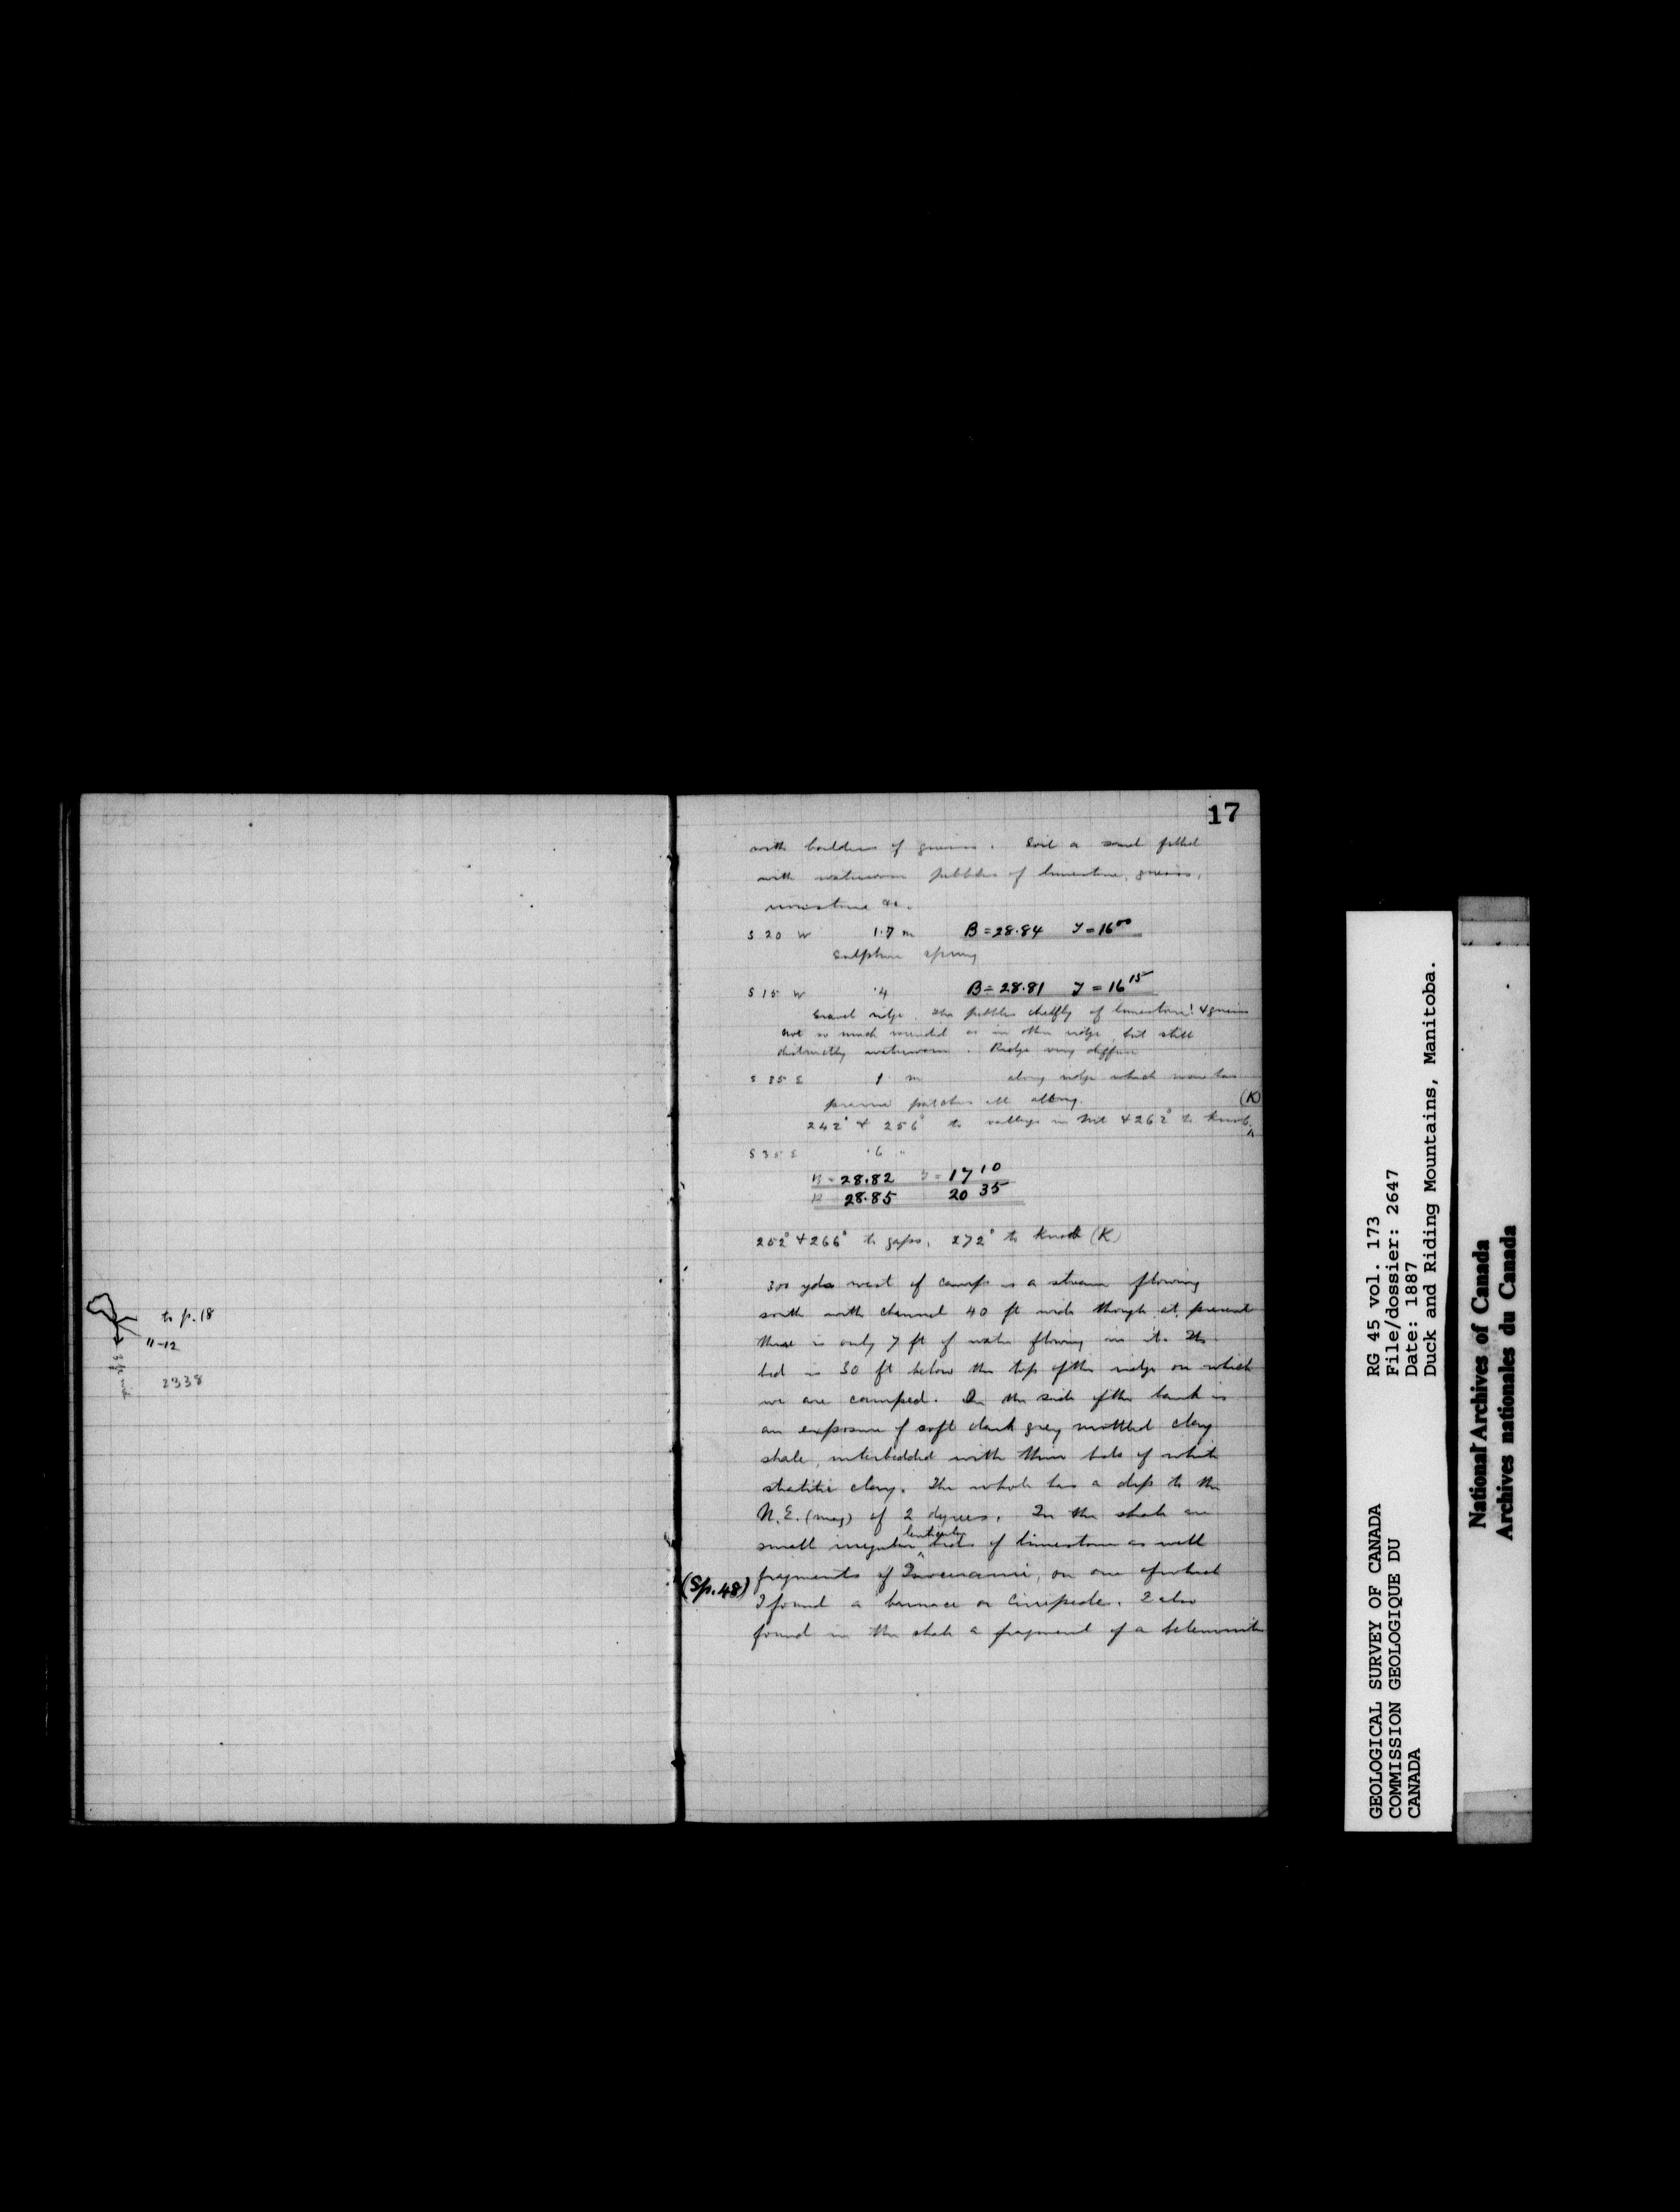 to p. 18
"-12
2338
17
with boulders of gneiss. Soil a sand filled
with waterworn pebbles of limestone, gneiss,
&c.
S 20 W 1.7 m B = 28.84 T = 16 00
Sulphur spring
S 15 W .4 B = 28.81 T = 16 15
Gravel ridge. The pebbles chiefly of limestone! & gneiss
not so much rounded as in other ridge, but still
distinctly waterworn. Ridge very diffuse
S 35 E 1 m along ridge which now has
prairie patches all along. (K)
242° & 256° to valleys in Mt & 262° to Knob.
S 35 E .6 "
B = 28.82 T = 17 10
B 28.85 20 35
252° & 266° to gaps, 272° to Knob (K)
300 yds west of camp is a stream flowing
south with channel 40 ft wide though at present
there is only 7 ft of water flowing in it. Its
bed is 30 ft below the top of the ridge on which
we are camped. In the side of the bank is
an exposure of soft dark grey mottled clay
shale, interbedded with thin beds of white
clay. The whole has a dip to the
N.E. (mag) of 2 degrees. In the shale are
small irregular lenticular beds of limestone as well
(Sp. 48) fragments of Inocerami, on one of which
I found a barnacle or Cirripede. I also
found in the shale a fragment of a belemnite
GEOLOGICAL SURVEY OF CANADA
COMMISSION GEOLOGIQUE DU
CANADA
RG 45 vol. 173
File/dossier: 2647
Date: 1887
Duck and Riding Mountains, Manitoba.
National Archives of Canada
Archives nationales du Canada